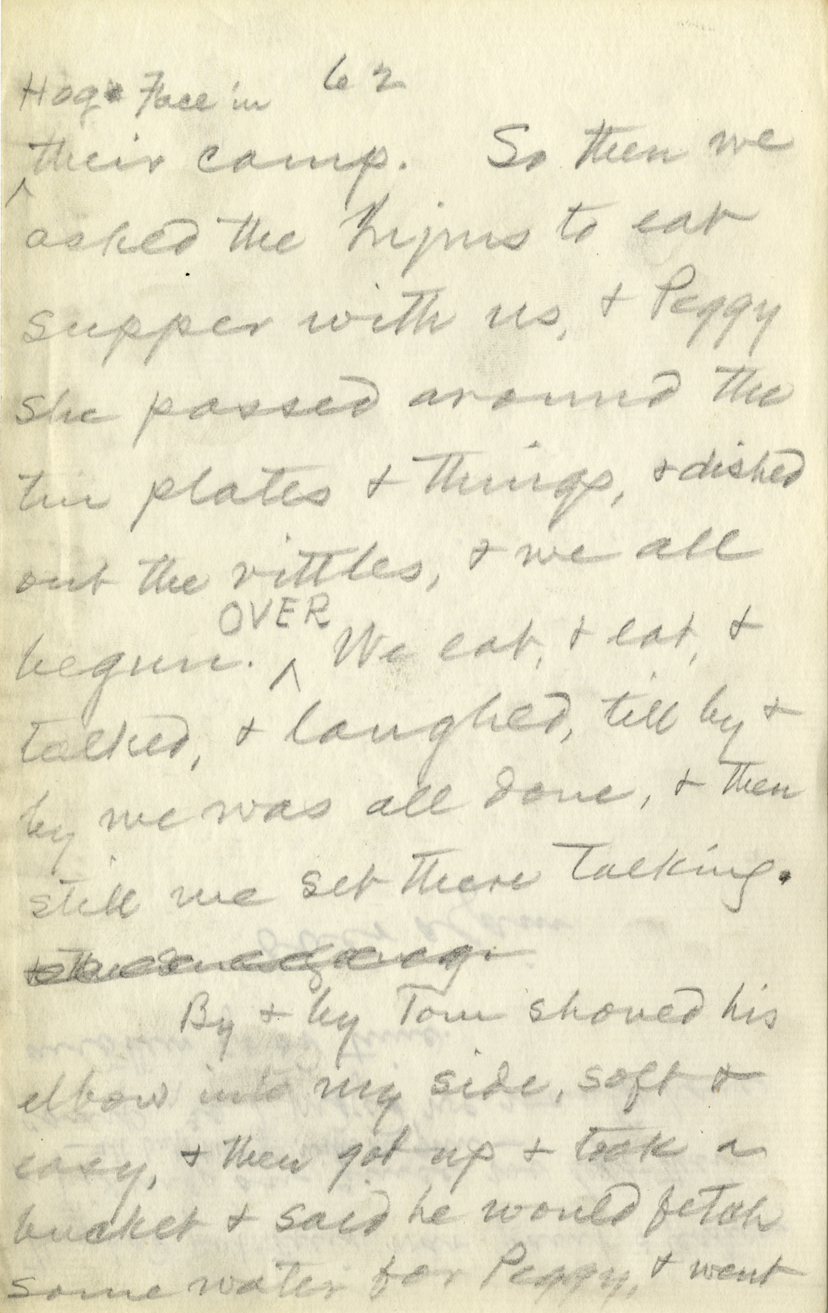 62
Hog Face in
their camp. So then we
asked the Injuns to eat
supper with us, & Peggy
she passed around the
tin plates & things, & dished
out the vittles, & we all
OVER
begun. ^ We eat, & eat, &
talked, & laughed, till by &
by we was all done, & then
still we set there talking.
By & by Tom shoved his
elbow into my side, soft &
easy, & then got up & took a
bucket & said he would fetch
some water for Peggy, & went